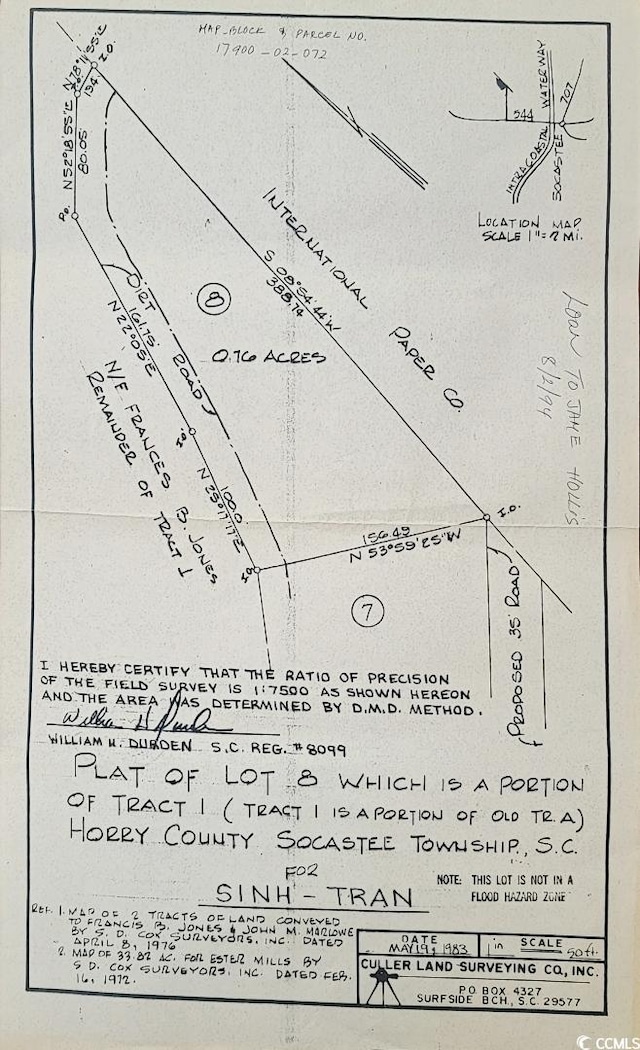 MAP-BLOCK & PARCEL NO.
17900-02-072
I.O.
N 52°18'55"E
80.05'
Po.
INTERNATIONAL
PAPER CO.
S 08°54'44"W
388.74
544
707
INTRACOASTAL WATERWAY
SOCASTEE
LOCATION MAP
SCALE 1"=2 MI.
LOAN TO JAMIE HOLLIS
8/2/94
8
0.76 ACRES
DIRT ROAD
161.75'
N/F FRANCES B. JONES
REMAINDER OF TRACT 1
I.O.
100.0
I.O.
156.49
N 53°59'25"W
I.O.
7
PROPOSED 35' ROAD
I HEREBY CERTIFY THAT THE RATIO OF PRECISION
OF THE FIELD SURVEY IS 1:7500 AS SHOWN HEREON
AND THE AREA WAS DETERMINED BY D.M.D. METHOD.
WILLIAM H. DURDEN S.C. REG. #8099
PLAT OF LOT 8 WHICH IS A PORTION
OF TRACT 1 (TRACT 1 IS A PORTION OF OLD TR. A)
HORRY COUNTY SOCASTEE TOWNSHIP, S.C.
FOR
SINH-TRAN
NOTE: THIS LOT IS NOT IN A
FLOOD HAZARD ZONE
REF. 1. MAP OF 2 TRACTS OF LAND CONVEYED
TO FRANCIS B. JONES & JOHN M. MARLOWE
BY S. D. COX SURVEYORS, INC. DATED
APRIL 8, 1976
2. MAP OF 33.82 AC. FOR ESTER MILLS BY
S D. COX SURVEYORS, INC. DATED FEB.
16, 1972.
DATE
MAY 19, 1983
SCALE
1 in 50 ft.
CULLER LAND SURVEYING CO., INC.
P.O. BOX 4327
SURFSIDE BCH., S.C. 29577
CCMLS